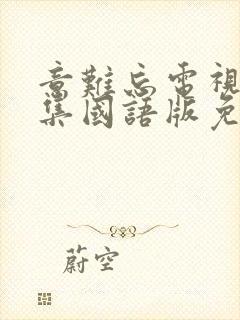 意難忘電視
集國語版免
蔚空